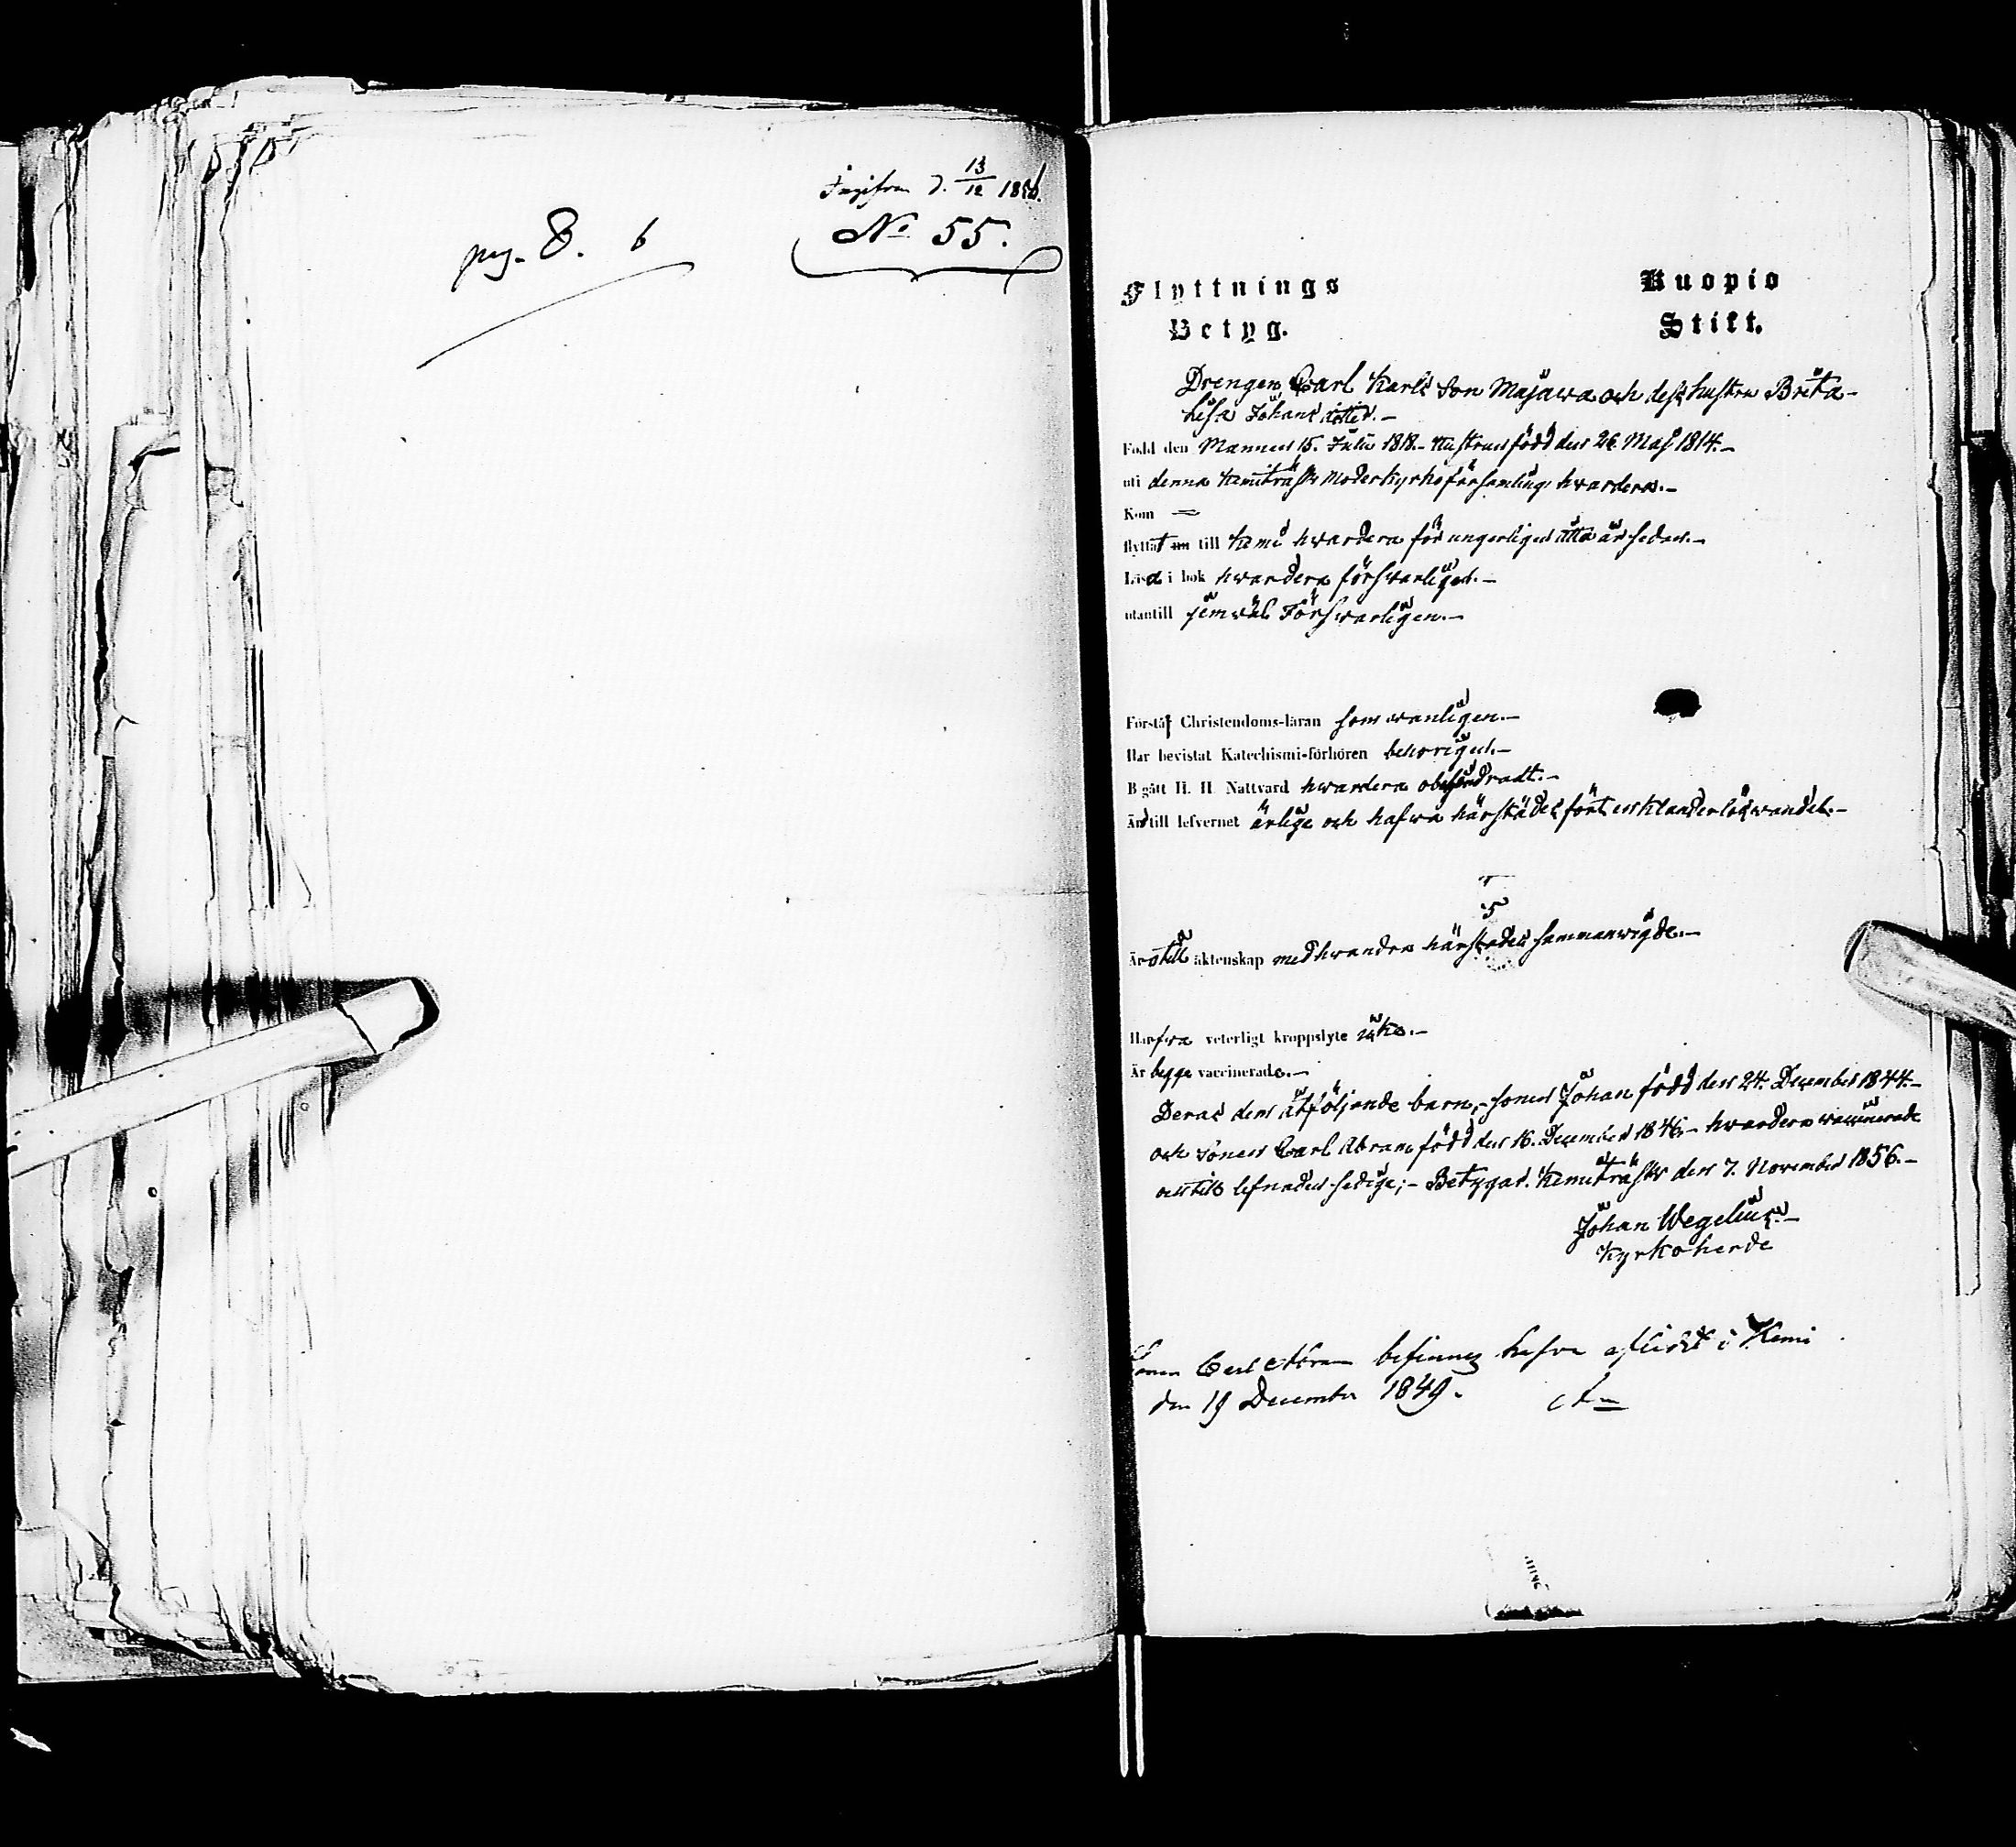 d. 13/12 1856.
No 55.
pag. 8. b
Flyttnings Kuopio
Betyg. Stift.
Drengen Carl Karls Son Majawa och dess hustru Brita
Lisa Johans dotter.-
Född den Mannen 15. Julii 1818.- Hustrun född den 26. Maji 1814.-
uti denna Kemiträsks Moderkyrko församling hwardera.-
Kom =
flyttat nu till Kemi hwardera för ungerligen åtta år sedan.-
Läsa i bok hwardera försvarligen.-
utantill jemwäl Försvarligen.-
Förstår Christendoms-läran som wanligen.-
Har bevistat Katechismi-förhören behörigen.-
Begått H. H. Nattvard hwardera obehindradt.-
Äro till lefvernet ärlige och hafwa härstädes fört en klanderlös wandel.-
Äro till äktenskap med hwandra härstädes sammanwigde.-
Hafwa veterligt kroppslyte icke.-
Är begge vaccinerade.-
Deras dem åtföljande barn,- sonen Johan född den 24. December 1844.-
och Sonen Carl Abram född den 16. December 1846.- hwardera waccinerade
och till lefnaden sedige;- Betygar. Kemiträsk den 7. November 1856.-
Johan Wegelius.-
Kyrkoherde
Sonen Carl Abram befinnes hafva aflidit i Kemi
den 19 December 1849.